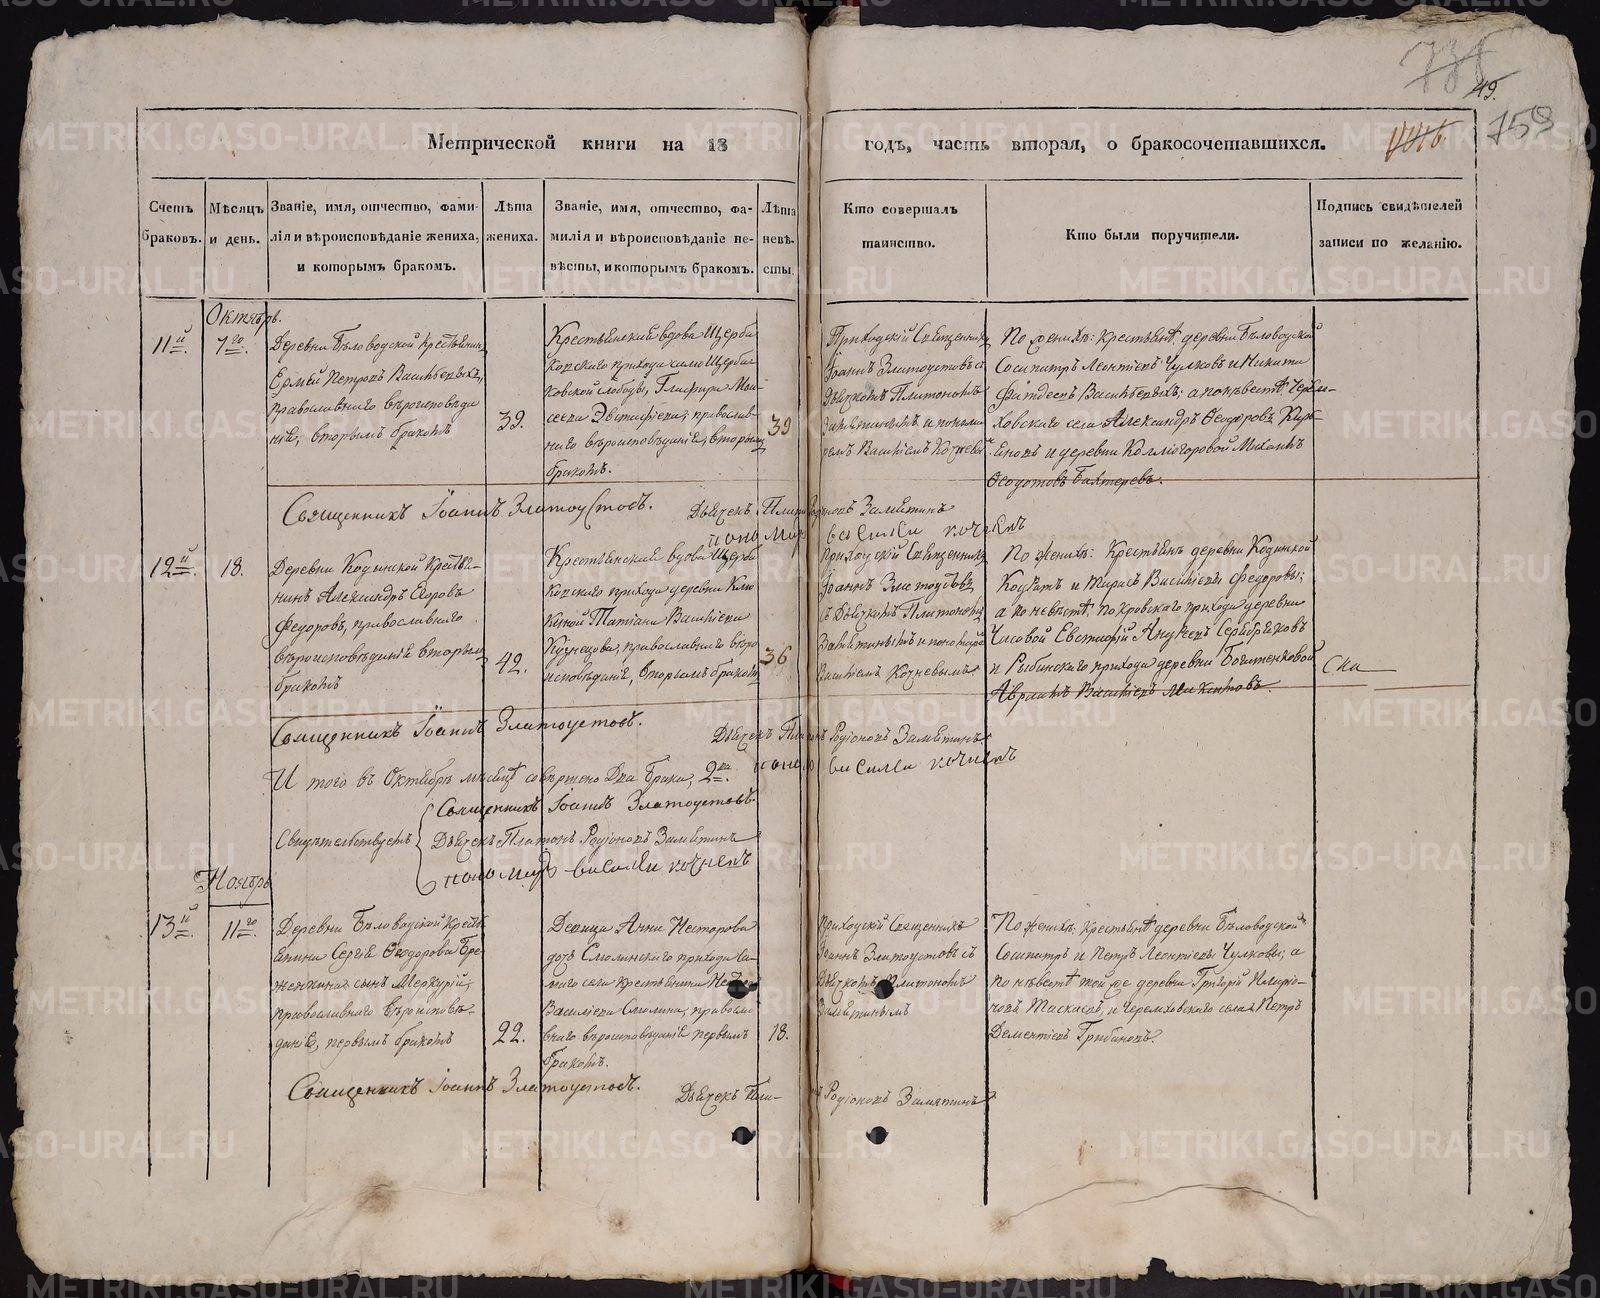 49.
759
Метрической книги на 18
годъ, часть вторая, о бракосочетавшихся.
Счетъ браковъ.
Мѣсяцъ и день.
Званіе, имя, отчество, фами-
лія и вѣроисповѣданіе жениха,
и которымъ бракомъ.
Лѣта
жениха.
Званіе, имя, отчество, фа-
милія и вѣроисповѣданіе не-
вѣсты, и которымъ бракомъ.
Лѣта
невѣ-
сты.
Кто совершалъ
таинство.
Кто были поручители.
Подпись свидѣтелей
записи по желанію.
Октябрь.
11й
7го
Деревни Бѣловодской Крестьянин
Петровъ Васильевыхъ,
православнаго вѣроисповѣда
нія, вторымъ бракомъ
39.
Крестьянская вдова Щерба
ковскаго прихода села Щерба
ковской слободы, Глафира Мои-
сеева православ-
наго вѣроисповѣданія, вторым
бракомъ.
39
Приходскій Священникъ
Іоаннъ Златоустовъ съ
Дьячкомъ Платономъ
Замятинымъ и понома
ремъ Василіемъ
По женихѣ: крестьяне деревни Бѣловодской
Сосипатръ Леонтіевъ Чулковъ и Никита
Васильевыхъ; а по невѣстѣ Черем-
ховскаго села Александръ Ѳеодоровъ
и деревни
Ѳеодотовъ Бахтеревъ.
Священникъ Іоаннъ Златоустовъ.
Дьячекъ Платонъ Родіоновъ Замятинъ
пономарь василеи
12й
18.
Деревни Кодинской Крестья-
нинъ Александръ Егоровъ
Федоровъ, православнаго
вѣроисповѣданія вторым
бракомъ
42.
Крестьянская вдова Щерба
ковскаго прихода деревни
Татіана Васильева
Кузнецова, православнаго вѣро
исповѣданія, вторымъ бракомъ
36
Приходскій Священникъ
Іоаннъ Златоустовъ
съ Дьячкомъ Платономъ
Замятинымъ и пономаремъ
Василіемъ
По женихѣ: Крестьяне деревни Кодинской
и Василіевы Федоровы;
а по невѣстѣ, Покровскаго прихода деревни
Часовой Евстафій Андреевъ Серебряковъ
и Рыбинскаго прихода деревни Богатенковой
Василіевъ
Священникъ Іоаннъ Златоустовъ.
Дьячекъ Платонъ Родіоновъ Замятинъ
пономарь василеи
И того въ Октябрѣ мѣсяцѣ совершено Два Брака, 2ва.
Свидѣтельствуетъ
Священникъ Іоаннъ Златоустовъ.
Дьячекъ Платонъ Родіоновъ Замятинъ
пономарь василеи
Ноябрь
13й
11го
Деревни Бѣловодской Кресть
янина Сергѣя Ѳеодорова Бре-
женкина сынъ Меркурій,
православнаго вѣроисповѣ-
данія, первымъ бракомъ
22.
Девица Анна Несторова
дочь Смолинскаго прихода са-
маго села крестьянина
Василіева Смолина, православ
наго вѣроисповѣданія первымъ
бракомъ.
18.
Приходскій Священникъ
Іоаннъ Златоустовъ съ
Дьячкомъ Платономъ
Замятинымъ
По женихѣ: крестьяне деревни Бѣловодской
Сосипатръ и Петръ Леонтіевы Чулковы; а
по невѣстѣ той же деревни Григорій
Таскаевъ, и Черемховскаго села Петръ
Дементіевъ Грибановъ.
Священникъ Іоаннъ Златоустовъ.
Дьячекъ Платонъ Родіоновъ Замятинъ
METRIKI.GASO-URAL.RU